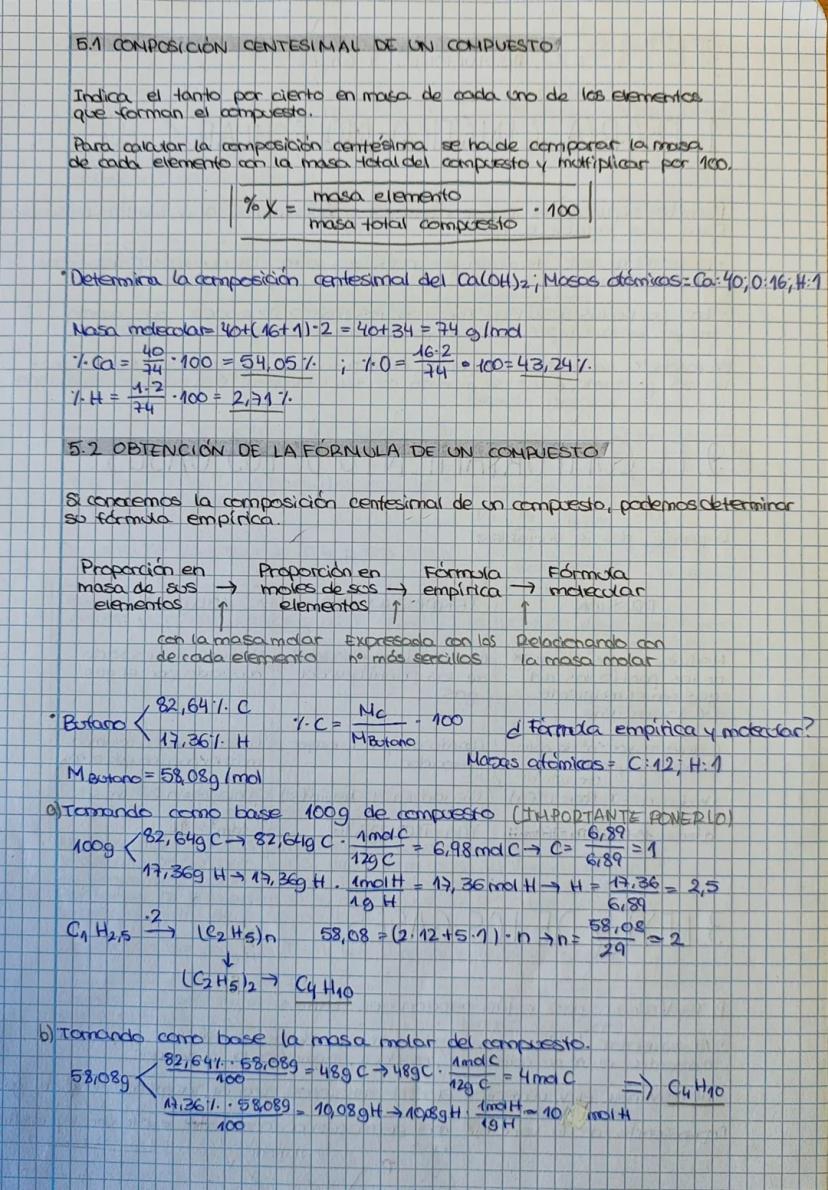 5.1 COMPOSICIÓN CENTESIMAL DE UN COMPUESTO
Indica el tanto por ciento en masa de cada uno de los elementos
que forman el compuesto.
Para calcular la composición centésima se ha de comparar la masa
de cada elemento con la masa total del compuesto y multiplicar por 100.
% X = masa elemento / masa total compuesto · 100
· Determina la composición centesimal del Ca(OH)2; Masas atómicas = Ca:40; O:16; H:1
Masa molecular = 40+(16+1)·2 = 40+34 = 74 g/mol
% Ca = 40/74 · 100 = 54,05% ; % O = 16·2/74 · 100 = 43,24%
% H = 1·2/74 · 100 = 2,71%
5.2 OBTENCIÓN DE LA FÓRMULA DE UN COMPUESTO
Si conocemos la composición centesimal de un compuesto, podemos determinar
su fórmula empírica.
Proporción en masa de sus elementos → Proporción en moles de sus elementos → Fórmula empírica → Fórmula molecular
↑ ↑ ↑
con la masa molar Expresada con los Relacionando con
de cada elemento nº más sencillos la masa molar
· Butano < 82,64% C
17,36% H
% C = Mc / MButano · 100
¿Fórmula empírica y molecular?
Masas atómicas = C:12; H:1
MButano = 58,08g/mol
a) Tomando como base 100g de compuesto (IMPORTANTE PONERLO)
100g < 82,64g C → 82,64g C · 1mol C / 12g C = 6,98 mol C → C = 6,89/6,89 = 1
17,36g H → 17,36g H · 1mol H / 1g H = 17,36 mol H → H = 17,36/6,89 = 2,5
C1 H2,5 ·2→ (C2H5)n 58,08 = (2·12+5·1)·n → n = 58,08/29 = 2
↓
(C2H5)2 → C4H10
b) Tomando como base la masa molar del compuesto.
58,08g < 82,64% · 58,08g / 100 = 48g C → 48g C · 1mol C / 12g C = 4 mol C ⇒ C4H10
17,36% · 58,08g / 100 = 10,08g H → 10,8g H · 1mol H / 1g H = 10 mol H